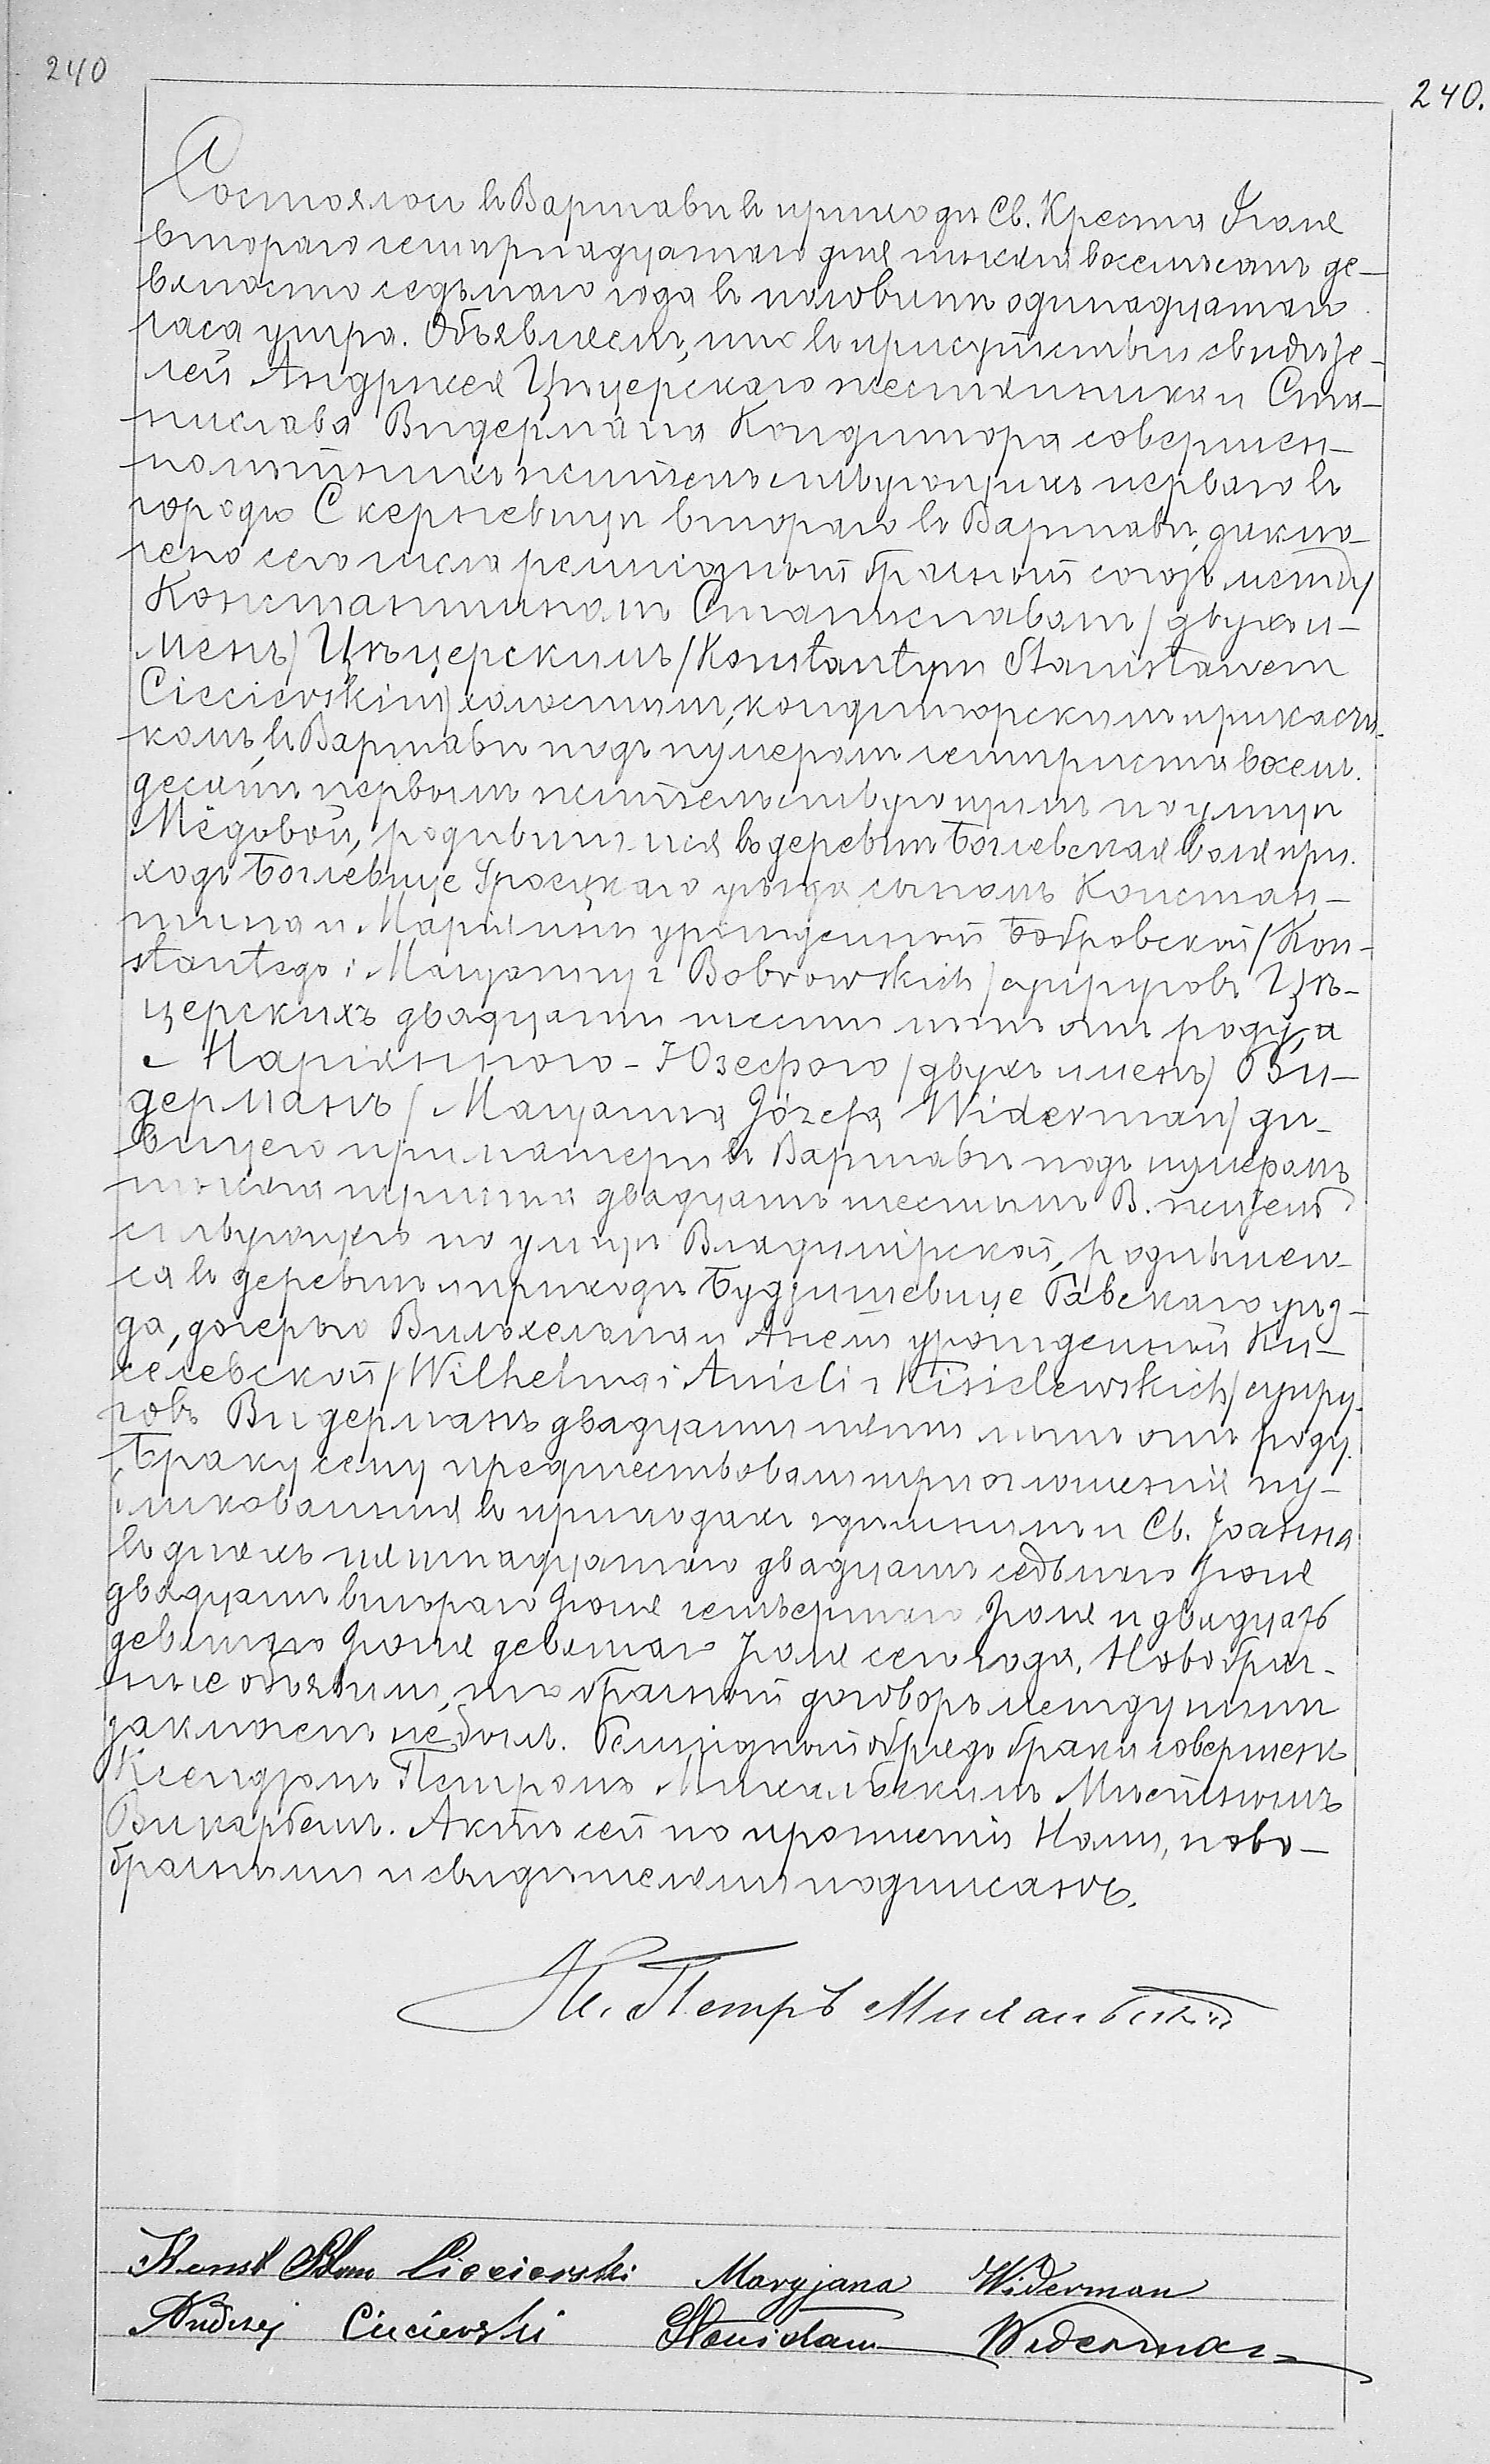 240
240.
Состоялось въ Варшавѣ въ приходѣ Св. Креста Іюля
втораго четырнадцатаго дня тысяча восемьсотъ де-
вяносто седьмаго года въ половинѣ одинадцатаго
часа утра. Объявляемъ, что въ присутствіи свидѣте-
лей Андржея Цѣцерскаго жестянника и Ста-
нислава Видермана Кондитора совершен-
нолѣтнихъ жительствующихъ перваго въ
городѣ Скерневицы втораго въ Варшавѣ, заклю-
чено сего числа религіозный брачный союзъ между
Константиномъ Станиславомъ /двухъ и-
менъ/ Цѣцерскимъ /Konstantym Stanisławem
Ciecierskim/ холостымъ, кондиторскимъ прикасчи-
комъ, въ Варшавѣ подъ нумеромъ четыриста восемь-
десятъ первымъ жительствующимъ по улицѣ
Мёдовой, родившимся въ деревнѣ Боглевская Воля при-
ходѣ Боглевице Гроецкаго уѣзда сыномъ Констан-
тина и Маріянны урожденной Бобровской /Kon-
stantego i Maryanny z Bobrowskich/ супруговъ Цѣ-
церскихъ двадцати шести лѣтъ отъ роду, а
с Маріянною-Юзефою /двухъ именъ/ Ви-
дерманъ /Maryanną Józefą Widerman/ дѣ-
вицею при матери въ Варшавѣ подъ нумеромъ
тысяча триста двадцать шестымъ В. житель-
ствующею по улицѣ Владимірской, родившею-
ся въ деревнѣ и приходѣ Будзишевице Равскаго уѣз-
да, дочерью Вильхельма и Анели урожденной Ки-
селевской /Wilhelma i Anieli z Kisielewskich/ супру-
говъ Видерманъ двадцати пяти лѣтъ отъ роду.
Браку сему предшествовали три оглошенія пу-
бликованныя въ приходахъ здѣшнемъ и Св. Іоанна
въ дняхъ пятнадцатаго двадцать седьмаго Іюня
двадцать втораго Іюня четвертаго Іюля и двадцать
девятаго Іюня девятаго Іюля сего года. Новобрач-
ные объявили, что брачный договоръ между ними
заключенъ не былъ. Религіозный обрядъ брака совершенъ
Ксендзомъ Петромъ Михальскимъ Мѣстнымъ
Викарбемъ. Актъ сей по прочтеніи Нами, ново-
брачными и свидѣтелями подписанъ.
Кс. Петръ Михальскій
Konst Stan Ciecierski Maryjana Widerman
Andrzej Ciecierski Stanisław Widerman